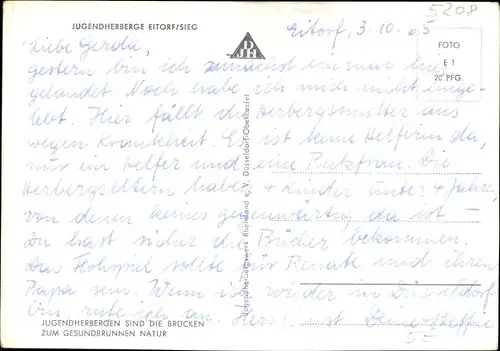 5208
JUGENDHERBERGE EITORF/SIEG
DJH
Eitorf, 3.10.65
FOTO
E 1
20 PFG.
Liebe Gerda,
gestern bin ich zunächst einmal hier
gelandet. Noch habe ich mich nicht einge-
lebt. Hier fällt die Herbergsmutter aus
wegen Krankheit. Es ist keine Helferin da,
nur ein Helfer und eine Putzfrau. Die
Herbergseltern haben 4 Kinder unter 4 Jahre,
von denen keines gegenwärtig da ist –
Du hast sicher die Bücher bekommen.
Das Flohspiel sollte für Renate und ihren
Papa sein. Wenn ich wieder in Düsseldorf
bin rufe ich an. Herzlichst Deine Steffie
Jugendherbergswerk Rheinland e. V. Düsseldorf-Oberkassel
JUGENDHERBERGEN SIND DIE BRÜCKEN
ZUM GESUNDBRUNNEN NATUR